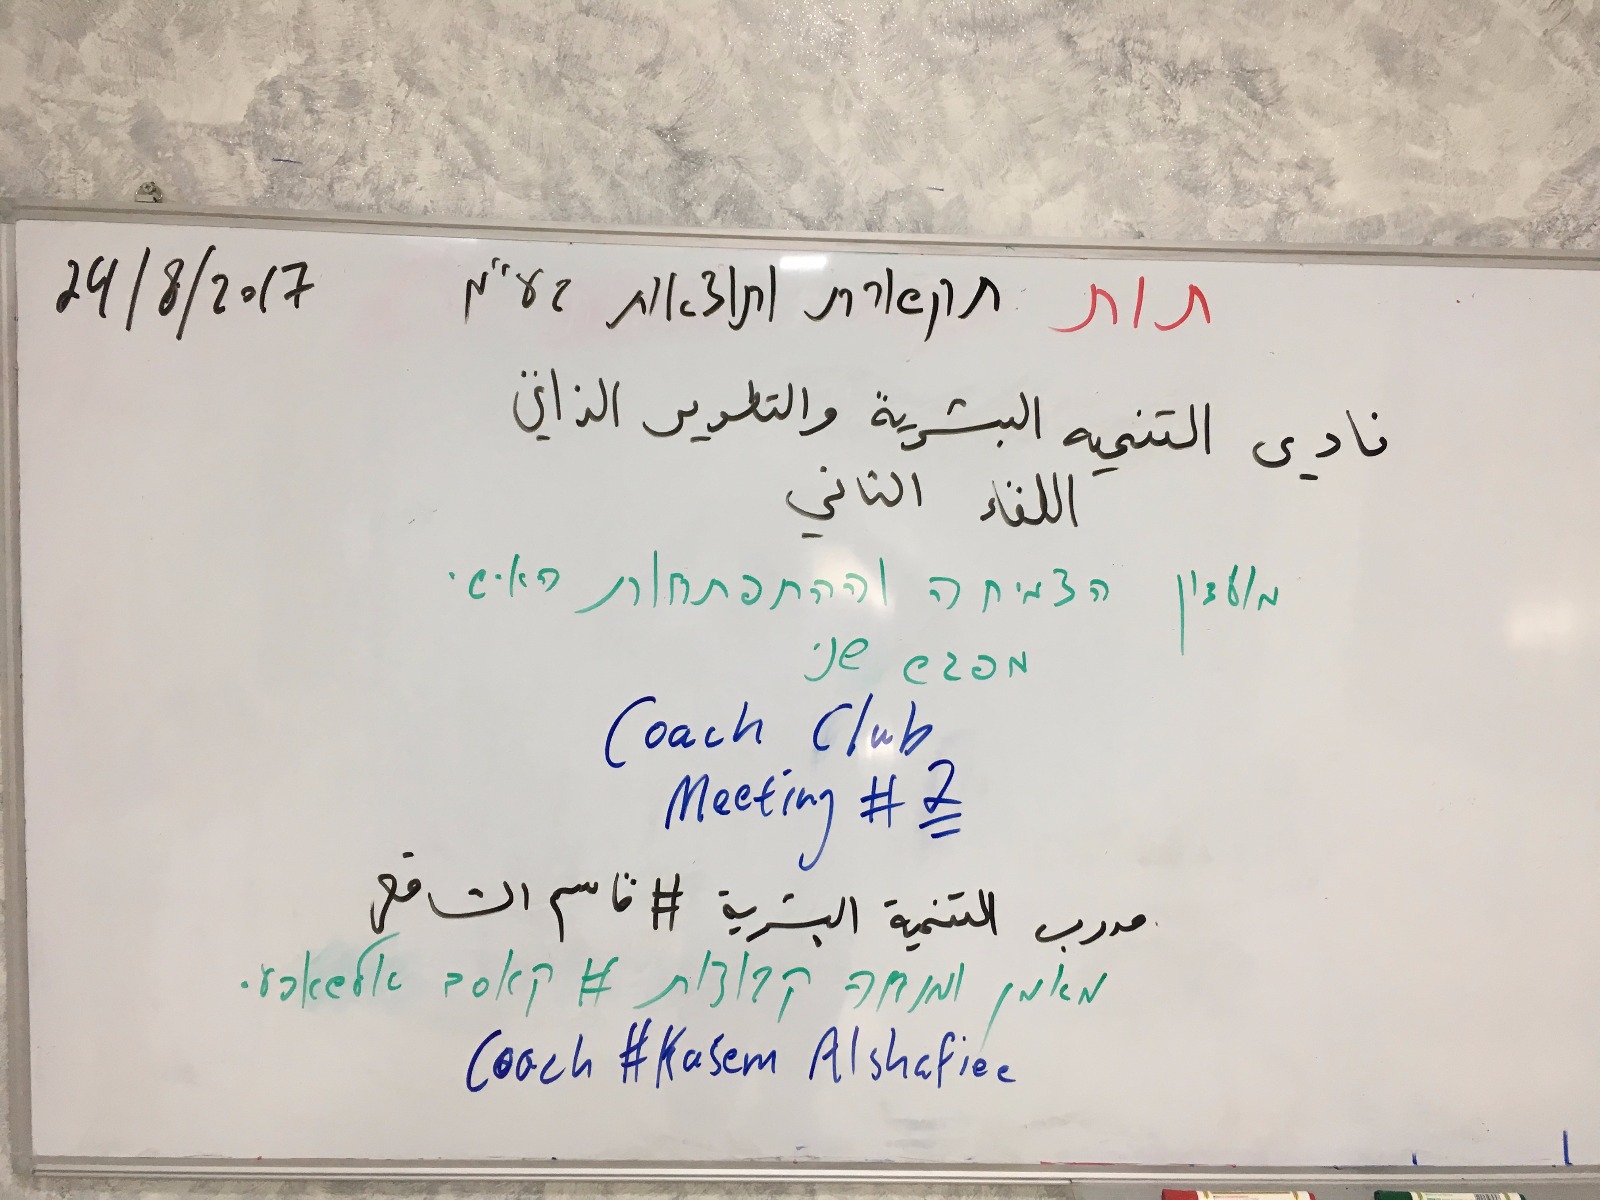 תות תקשורת ותוצאות בע"מ 24/8/2017
نادي التنميه البشرية والتطوير الذاتي
اللقاء الثاني
מועדון הצמיחה וההתפתחות האישי
מפגש שני
Coach Club
Meeting # 2
مدرب التنمية البشرية # قاسم الشافعي
מאמן ומנחה קבוצות # קאסם אלשאפעי
Coach #Kasem Alshafiee